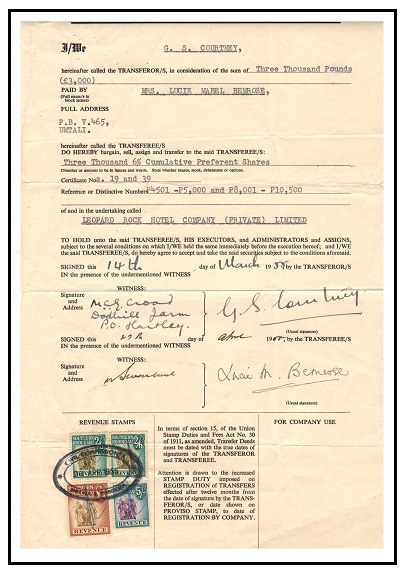 I/We G. S. COURTNEY,
hereinafter called the TRANSFEROR/S, in consideration of the sum of Three Thousand Pounds
(£3,000)
PAID BY MRS. LUCIE MABEL BEMROSE,
(Full name/s in
block letters)
FULL ADDRESS
P.B. V.465,
UMTALI.
hereinafter called the TRANSFEREE/S:
DO HEREBY bargain, sell, assign and transfer to the said TRANSFEREE/S:
Three Thousand 6% Cumulative Preferent Shares
(Number or amount to be in figures and words. State whether shares, stock, debentures or options.
Certificate Nos. 19 and 39
Reference or Distinctive Numbers P4501 -P5,000 and P8,001 - P10,500
of and in the undertaking called
LEOPARD ROCK HOTEL COMPANY (PRIVATE) LIMITED
TO HOLD unto the said TRANSFEREE/S, HIS EXECUTORS, and ADMINISTRATORS and ASSIGNS,
subject to the several conditions on which I/WE held the same immediately before the execution hereof; and I/WE
the said TRANSFEREE/S, do hereby agree to accept and take the said securities subject to the conditions aforesaid.
SIGNED this 14th day of March 1955 by the TRANSFEROR/S
IN the presence of the undermentioned WITNESS
WITNESS:
Signature
and
Address
P.O. Hartley.
G.S. Courtney
(Usual signature)
SIGNED this day of April 19 by the TRANSFEREE/S
IN the presence of the undermentioned WITNESS
WITNESS:
Signature
and
Address
Lucie M. Bemrose
(Usual signature)
REVENUE STAMPS
SOUTHERN RHODESIA
2/6
SOUTHERN RHODESIA
2/6
REVENUE
5/-
REVENUE
In terms of section 15, of the Union
Stamp Duties and Fees Act No. 30
of 1911, as amended, Transfer Deeds
must be dated with the true dates of
signatures of the TRANSFEROR
and TRANSFEREE.
Attention is drawn to the increased
STAMP DUTY imposed on
REGISTRATION OF TRANSFERS
effected after twelve months from
the date of signature by the TRANS-
FEROR/S, or date shown on
PROVISO STAMP, to date of
REGISTRATION BY COMPANY.
FOR COMPANY USE